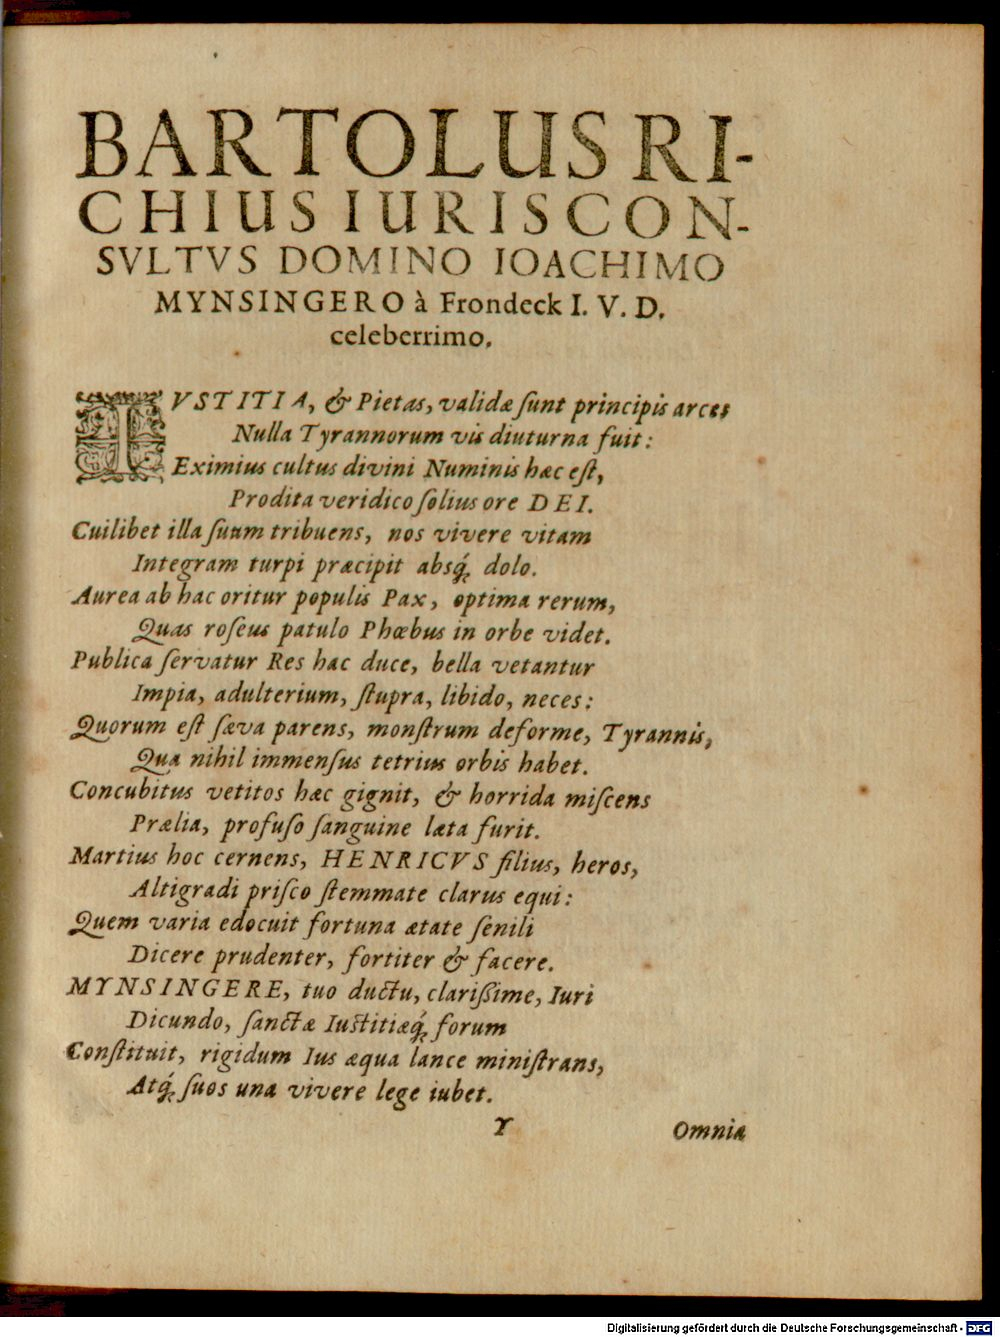 BARTOLUS RI-
CHIUS IURISCON-
SVLTVS DOMINO IOACHIMO
MYNSINGERO à Frondeck I. V. D.
celeberrimo.
IVSTITIA, & Pietas, validæ ſunt principis arces,
Nulla Tyrannorum vis diuturna fuit:
Eximius cultus divini Numinis hæc eſt,
Prodita veridico ſolius ore DEI.
Cuilibet illa ſuum tribuens, nos vivere vitam
Integram turpi præcipit absq́; dolo.
Aurea ab hac oritur populis Pax, optima rerum,
Quas roſeus patulo Phœbus in orbe videt.
Publica ſervatur Res hac duce, bella vetantur
Impia, adulterium, ſtupra, libido, neces:
Quorum eſt ſæva parens, monſtrum deforme, Tyrannis,
Qua nihil immenſus tetrius orbis habet.
Concubitus vetitos hæc gignit, & horrida miſcens
Prælia, profuſo ſanguine læta furit.
Martius hoc cernens, HENRICVS filius, heros,
Altigradi priſco ſtemmate clarus equi:
Quem varia edocuit fortuna ætate ſenili
Dicere prudenter, fortiter & facere.
MYNSINGERE, tuo ductu, clariſsime, Iuri
Dicundo, ſanctæ Iuſtitiæq́; forum
Conſtituit, rigidum Ius æqua lance miniſtrans,
Atq́; ſuos una vivere lege iubet.
Y Omnia
Digitalisierung gefördert durch die Deutsche Forschungsgemeinschaft - DFG